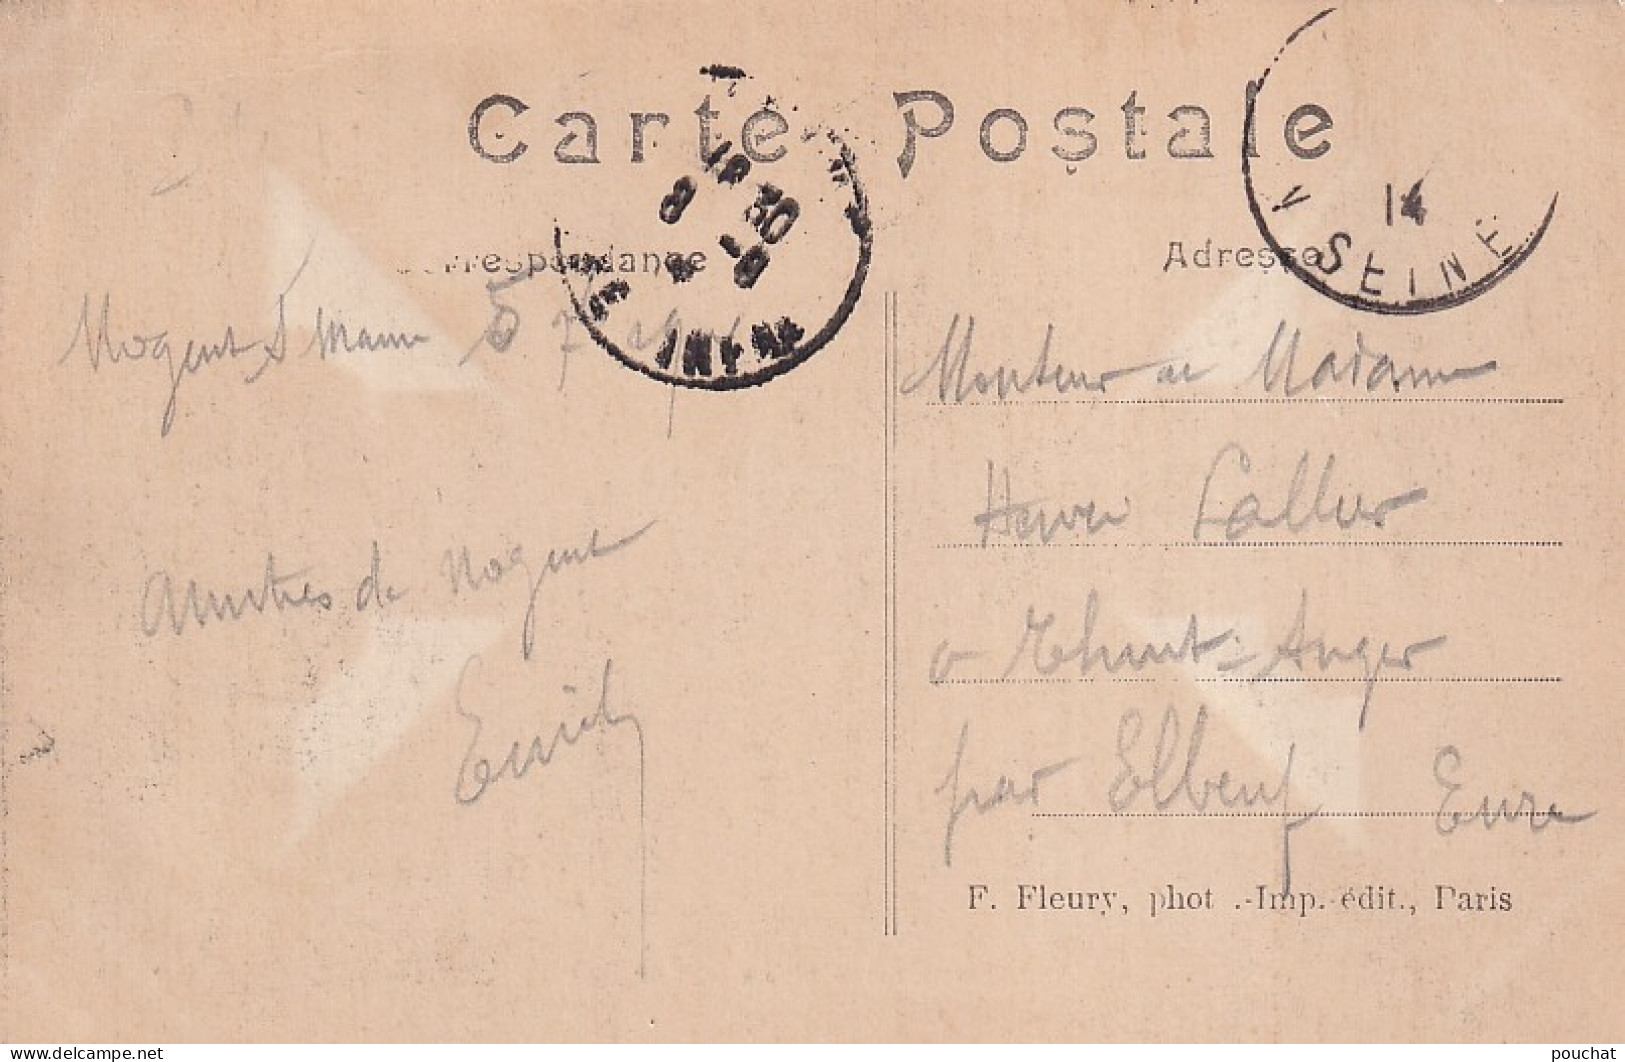 Carte Postale
Correspondance
Adresse
18 30
8
14
SEINE
Nogent S Marne 5 7
Amitiés de Nogent
Emile
Monsieur et Madame
Henri
à Thuit-Anger
par Elbeuf Eure
F. Fleury, phot .-Imp.-édit., Paris
pouchat